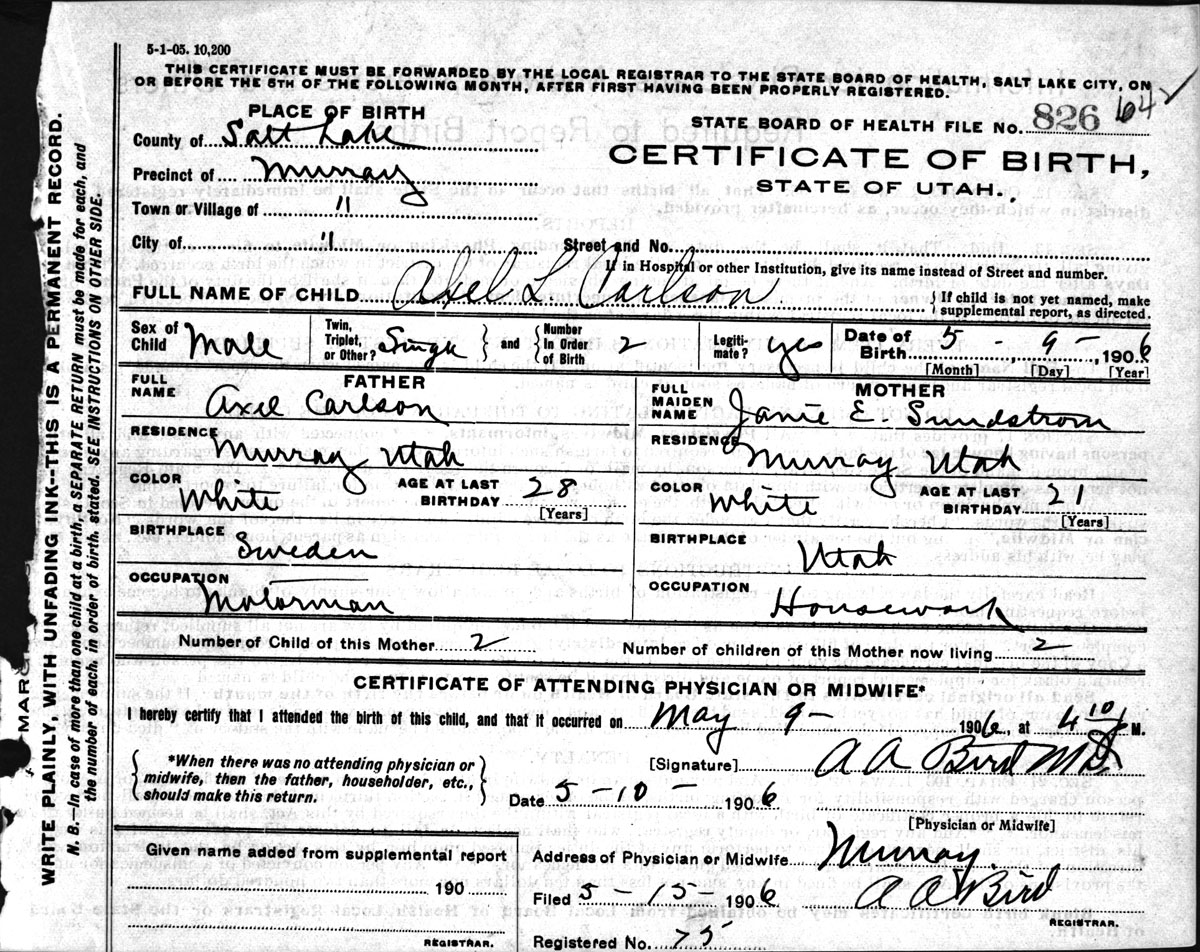 5-1-05. 10,200
THIS CERTIFICATE MUST BE FORWARDED BY THE LOCAL REGISTRAR TO THE STATE BOARD OF HEALTH, SALT LAKE CITY, ON
OR BEFORE THE 5TH OF THE FOLLOWING MONTH, AFTER FIRST HAVING BEEN PROPERLY REGISTERED.
PLACE OF BIRTH
STATE BOARD OF HEALTH FILE No. 826 642
County of Salt Lake
CERTIFICATE OF BIRTH,
Precinct of Murray
STATE OF UTAH.
Town or Village of "
City of " Street and No.
If in Hospital or other Institution, give its name instead of Street and number.
FULL NAME OF CHILD Axel L Carlson { If child is not yet named, make supplemental report, as directed.
Sex of Child Male Twin, Triplet, or Other? Single } and { Number in Order of Birth 2 Legiti-mate? yes Date of Birth 5 - 9 - 1906
[Month] [Day] [Year]
FATHER
FULL NAME Axel Carlson
RESIDENCE Murray Utah
COLOR White AGE AT LAST BIRTHDAY 28 [Years]
BIRTHPLACE Sweden
OCCUPATION Motorman
MOTHER
FULL MAIDEN NAME Janie E. Sundstrom
RESIDENCE Murray Utah
COLOR White AGE AT LAST BIRTHDAY 21 [Years]
BIRTHPLACE Utah
OCCUPATION Housework
Number of Child of this Mother 2 Number of children of this Mother now living 2
CERTIFICATE OF ATTENDING PHYSICIAN OR MIDWIFE*
I hereby certify that I attended the birth of this child, and that it occurred on May 9 - 1906, at 4 10 M.
{ *When there was no attending physician or
midwife, then the father, householder, etc.,
should make this return. }
[Signature] A A Bird M D.
Date 5 - 10 - 1906
[Physician or Midwife]
Given name added from supplemental report
190
REGISTRAR.
Address of Physician or Midwife Murray.
Filed 5 - 15 - 1906 A A Bird
REGISTRAR.
Registered No. 75
WRITE PLAINLY, WITH UNFADING INK--THIS IS A PERMANENT RECORD.
N. B.--In case of more than one child at a birth, a SEPARATE RETURN must be made for each, and
the number of each, in order of birth, stated. SEE INSTRUCTIONS ON OTHER SIDE.